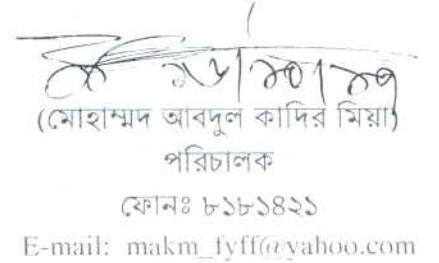 (মোহাম্মদ আবদুল কাদির মিয়া)
পরিচালক
ফোনঃ ৮১৮১৪২১
E-mail: makm_fyff@yahoo.com